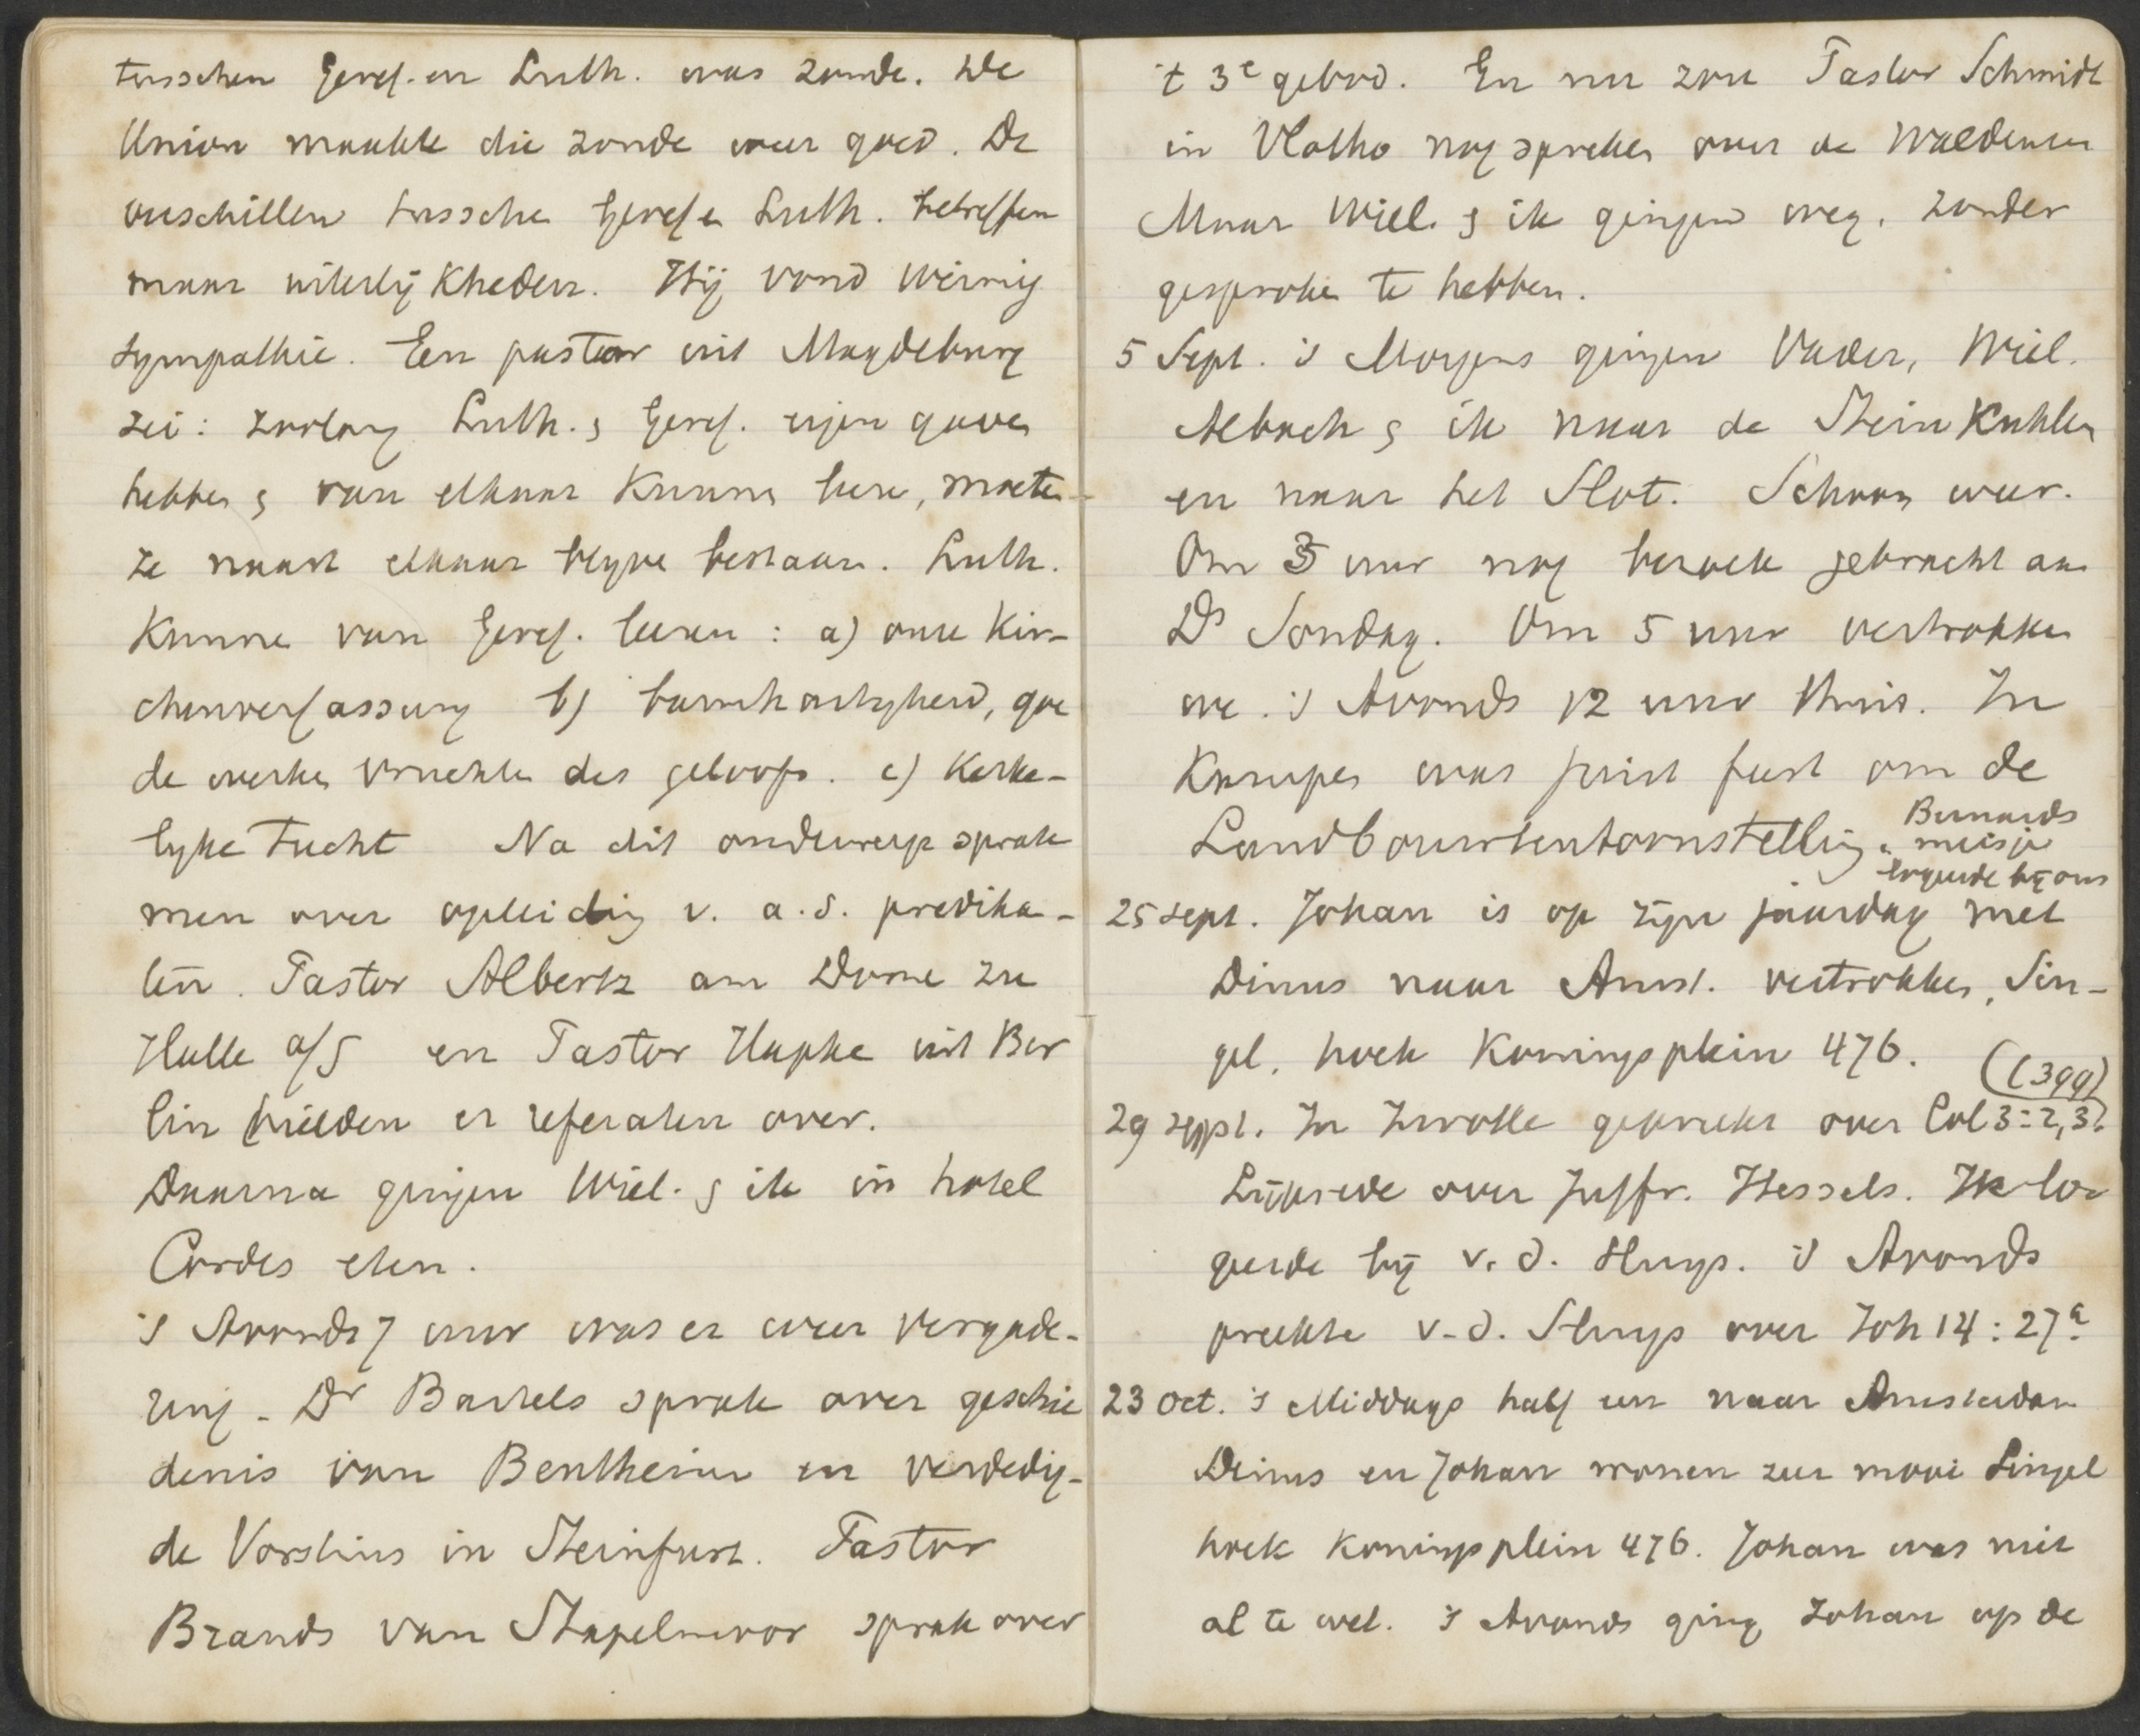 tusschen Geref. en Luth. was zonde. De
Union maakte die zonde weer goed. De
verschillen tussche Geref en Luth. betreffen
maar uiterlijkheden. Hij vond weinig
sympathie. Een pastoor uit Magdeburg
zei: zoolang Luth. & Geref. eigen gaven
hebben & van elkaar kunnen leren, moeten
ze naast elkaar blyve bestaan. Luth.
Kunne van Geref. leeren: a) onze Kir-
chenverfassung b) barmhartigheid, goe
de werken vruchten des geloofs. c) Kerke-
lyke Tucht Na dit onderwerp sprak
men over opleiding v. a.s. predika-
ten. Pastor Albertz am Dome zu
Halle a/S en Pastor Hapke uit Ber
lin hielden er referaten over.
Daarna gingen Wiel. & ik in hotel
Cordes eten.
's Avonds 7 uur was er weer vergade-
ring. Dr Bartels sprak over geschie
denis van Bentheim en verdedig-
de Vorstius in Steinfurt. Pastor
Brands van Stapelmoor sprak over
't 3e gebod. En nu zou Pastor Schmidt
in Vlotho nog spreken over de Waldenser
Maar Wiel. & ik gingen weg. zonder
gesproken te hebben.
5 Sept. 's Morgens gingen Vader, Wiel.
Alback & ik naar de Steinkuhlen
en naar het Slot. Schoon weer.
Om 3 uur nog bezoek gebracht aan
Ds Sondag. Om 5 uur vertrokken
we. 's Avonds 12 uur thuis. In
Kampen was juist feest om de
Landbouwtentoonstelling. Bernards
meisje
logeerde bij ons
25 sept. Johan is op zijn jaardag met
Dinus naar Amst. vertrokken, Sin-
gel, hoek Koningsplein 476.
(1399)
29 sept. In Zwolle gepreekt over Col 3:2,3.
Lijkrede over Juffr. Hessels. Ik lo-
geerde bij v. d. Sluys. 's Avonds
preekte v. d. Sluys over Joh 14:27a.
23 Oct. 's Middags half een naar Amsterdam
Dinus en Johan wonen zeer mooi Singel
hoek Koningsplein 476. Johan was niet
al te wel. 's Avonds ging Johan op de